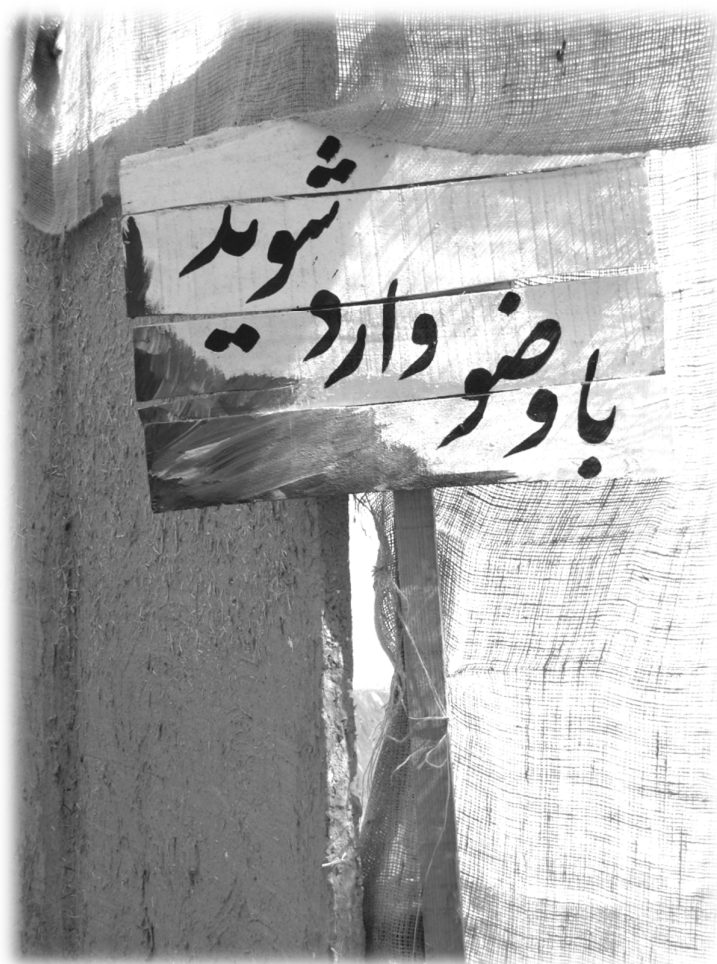 با وضو وارد
شوید